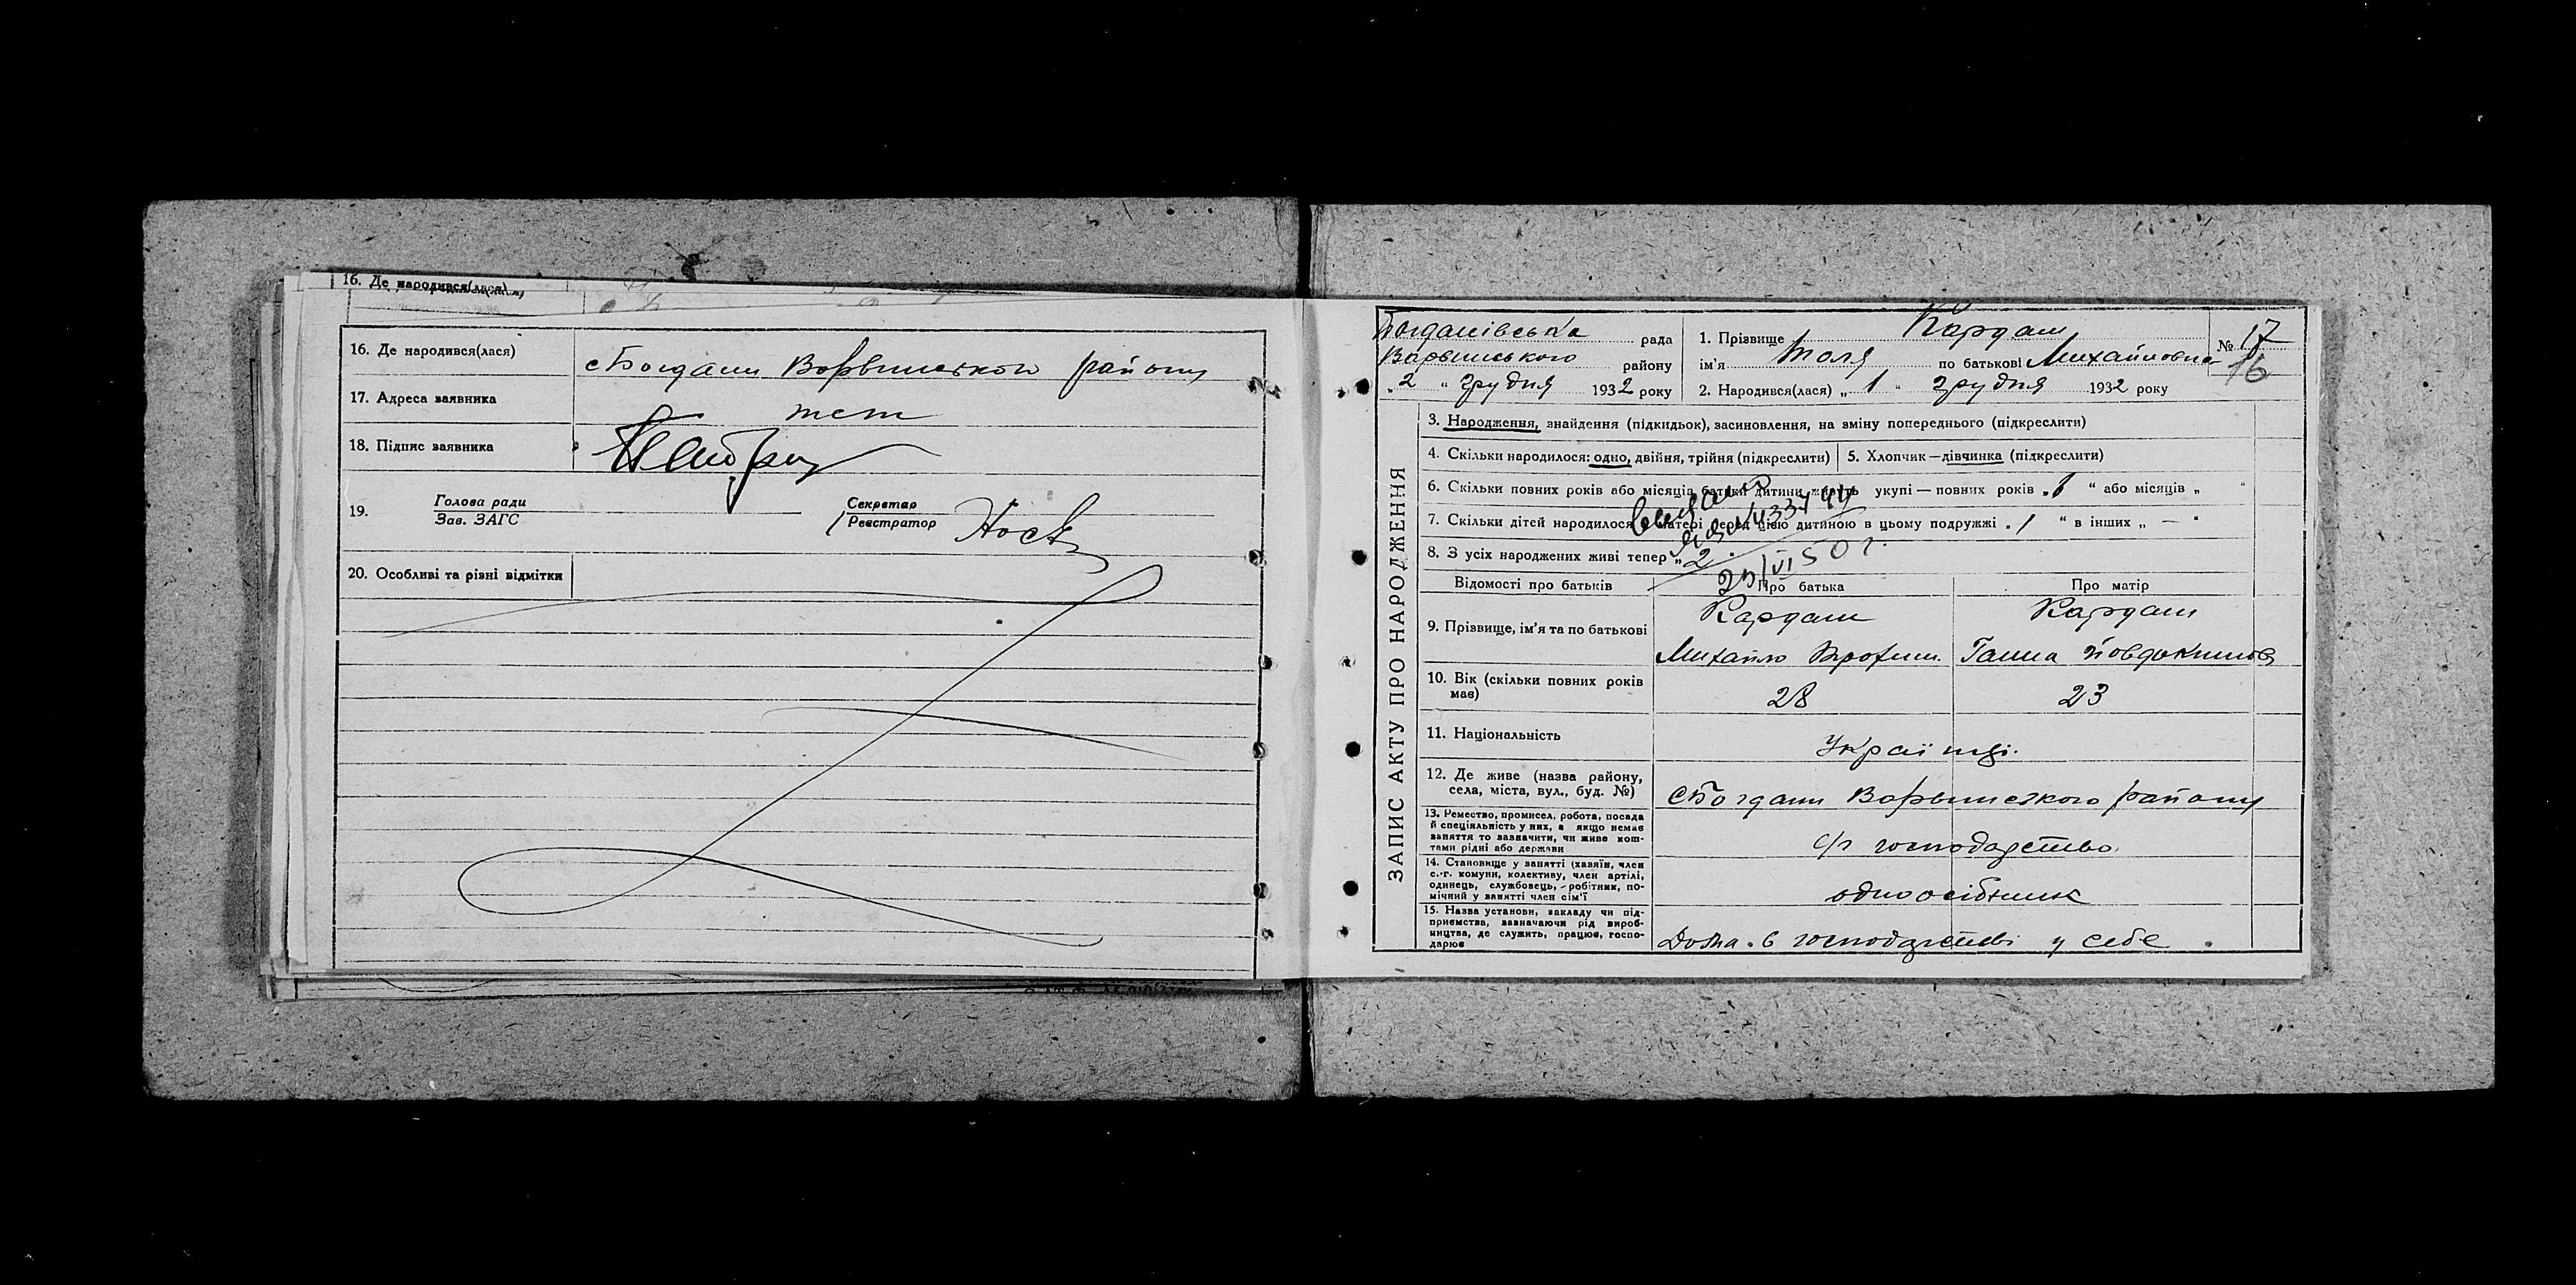 16. Де народився(лася)
16. Де народився(лася)
с Богдани Варвинського району
17. Адреса заявника
теж
18. Підпис заявника
19.
Голова ради
Зав. ЗАГС
Секретар
Реєстратор
Носа
20. Особливі та різні відмітки
ЗАПИС АКТУ ПРО НАРОДЖЕННЯ
Богданівська рада
Варвинського району
„ 2 “ Грудня 1932 року
1. Прізвище Кардаш
ім'я Толя по батькові Михайловна
2. Народився(лася) „ 1 “ грудня 1932 року
№ 17
16
3. Народження, знайдення (підкидьок), засиновлення, на зміну попереднього (підкреслити)
4. Скільки народилося: одно, двійня, трійня (підкреслити)
5. Хлопчик — дівчинка (підкреслити)
6. Скільки повних років або місяців батьки дитини живуть укупі — повних років „ “ або місяців „ “
7. Скільки дітей народилося у матері перед цією дитиною в цьому подружжі „ 1 “ в інших „ — “
8. З усіх народжених живі тепер „ 2
VI 50 г.
Відомості про батьків
Про батька
Про матір
9. Прізвище, ім'я та по батькові
Кардаш
Михайло Трохим.
Кардаш
Ганна Йовдокимов
10. Вік (скільки повних років має)
28
23
11. Національність
Українці.
12. Де живе (назва району, села, міста, вул., буд. №)
с Богдани Варвинського району
13. Ремество, промисел, робота, посада й спеціяльність у них, а якщо немає заняття то зазначити, чи живе коштами рідні або держави
с/г господарство
14. Становище у занятті (хазяїн, член с.-г. комуни, колективу, член артілі, одинець, службовець, робітник, помічний у занятті член сім'ї
одноосібник
15. Назва установи, закладу чи підприємства, зазначаючи рід виробництва, де служить, працює, господарює
Дома в господарстві у себе